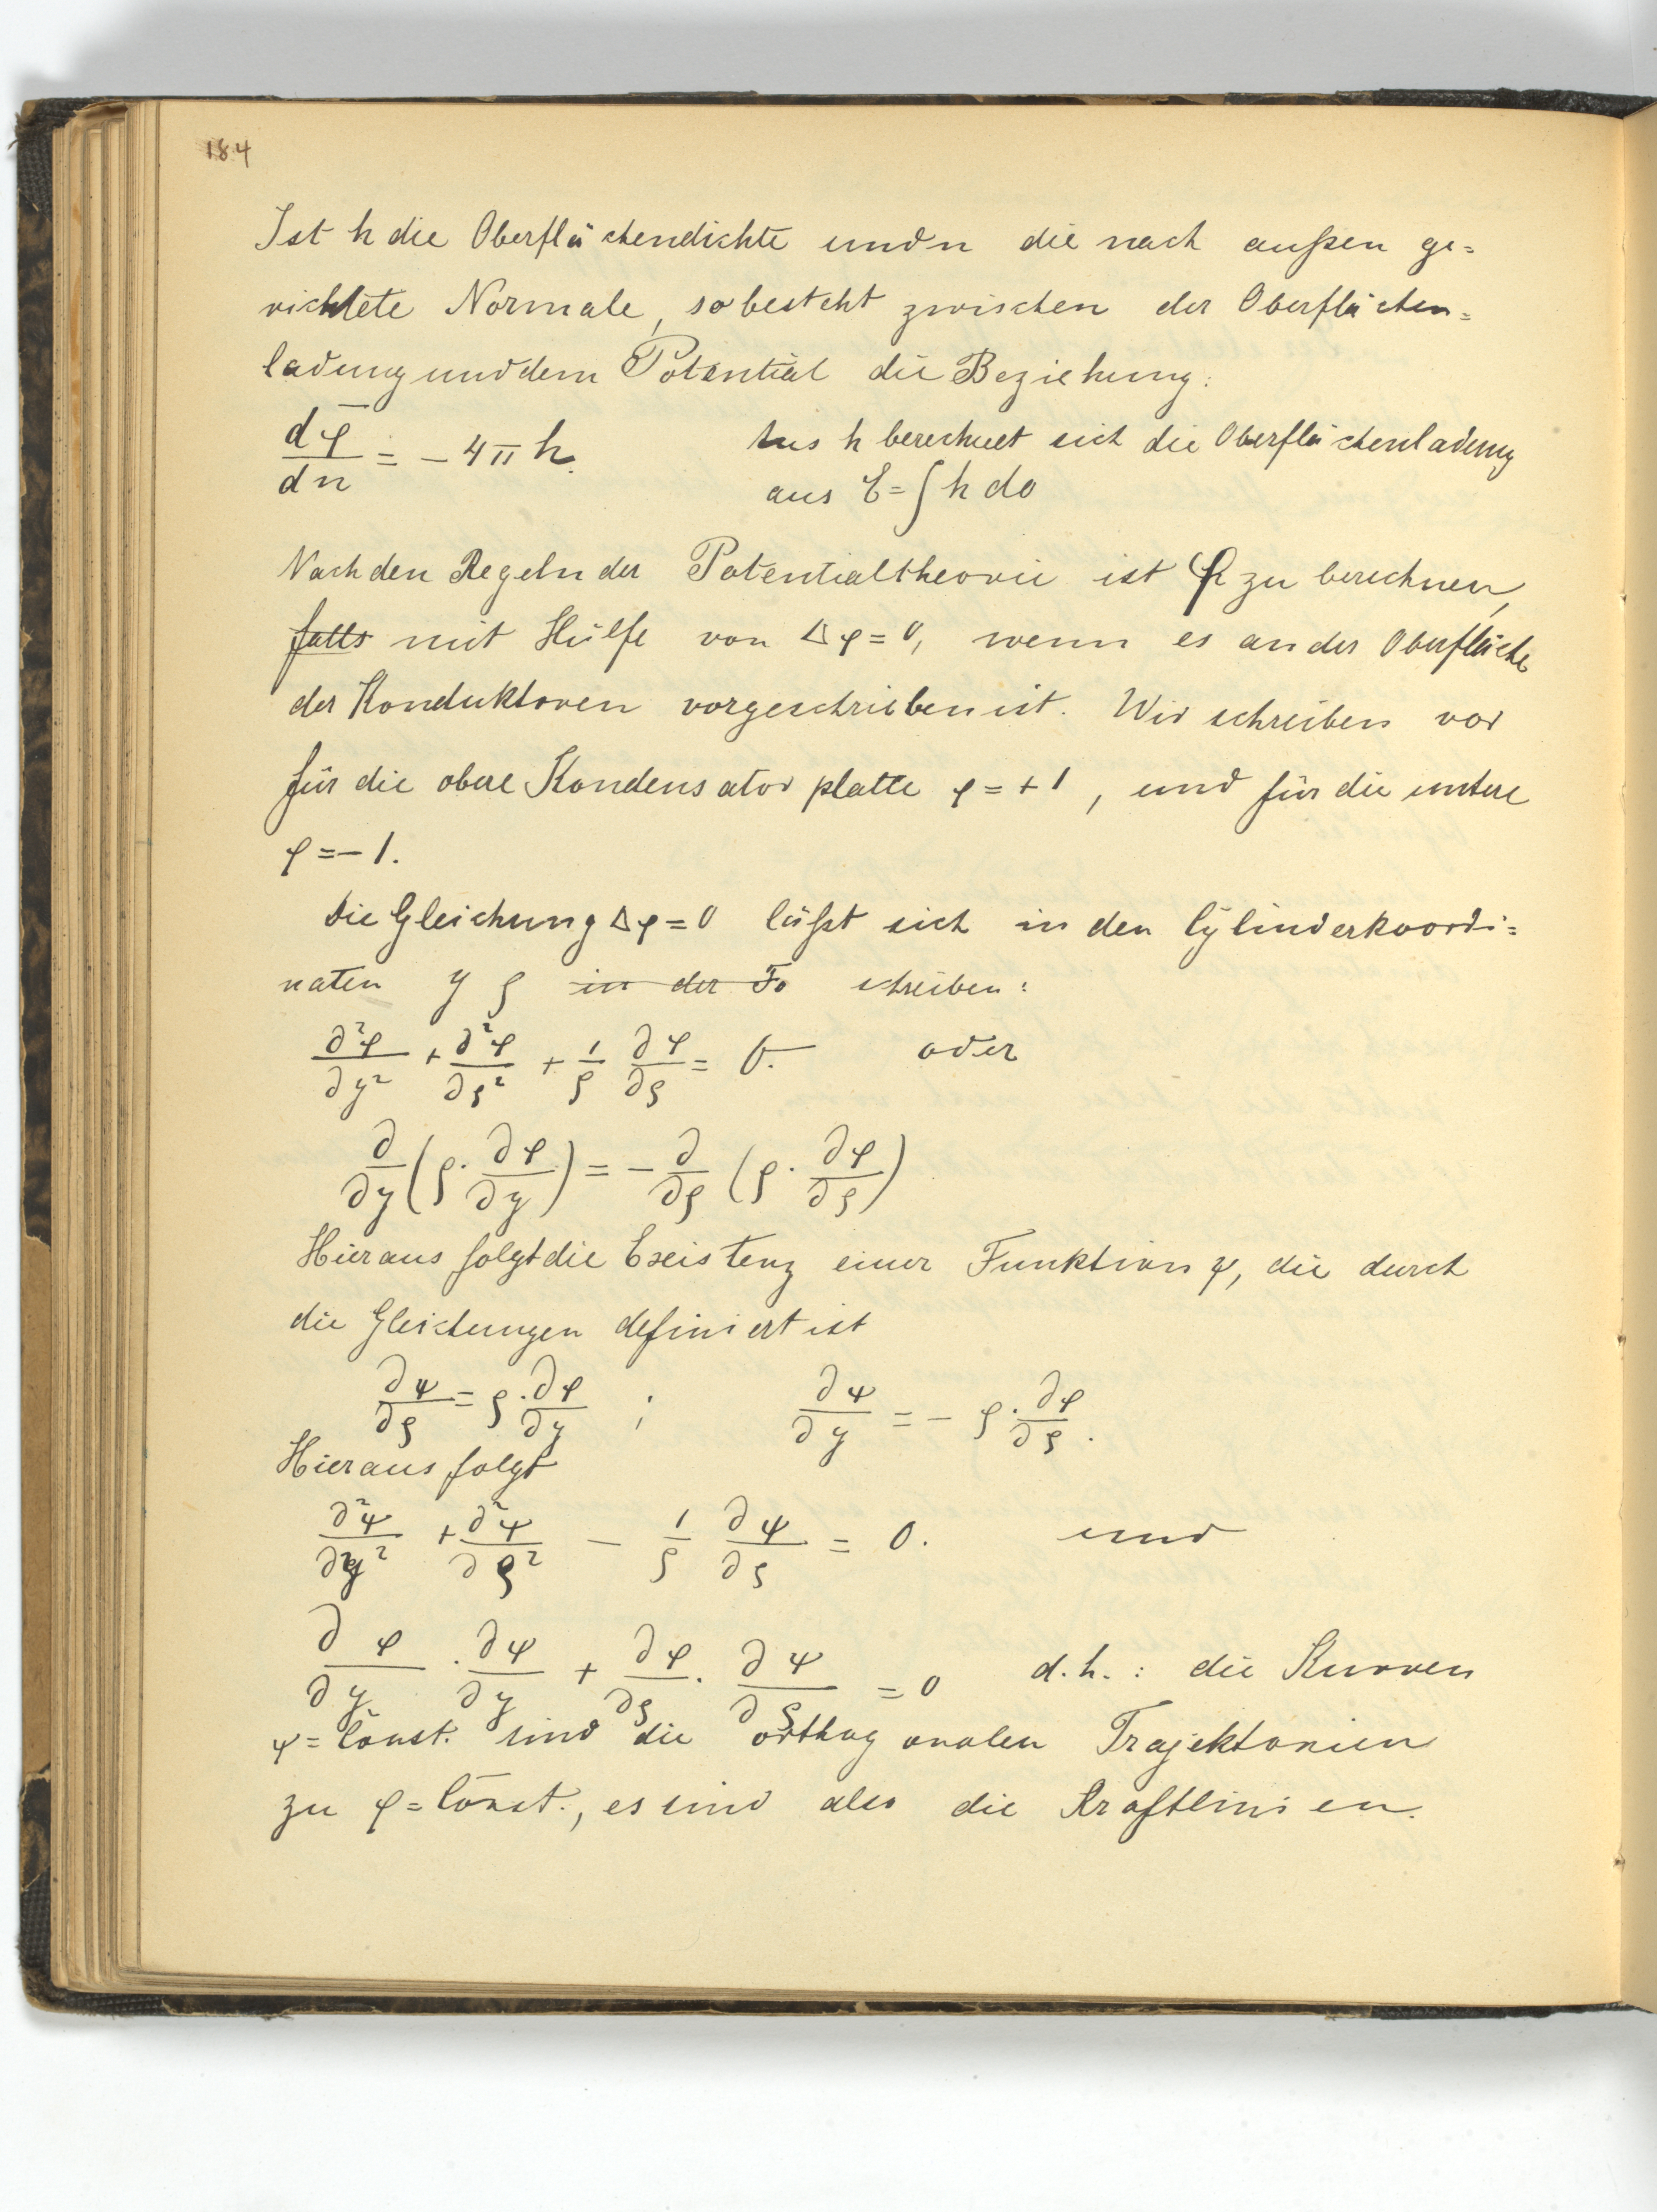 184
Ist h die Oberflächendichte und n die nach außen ge=
richtete Normale, so besteht zwischen der Oberflächen=
ladung und dem Potential die Beziehung:
dφ/dn = - 4πh. Aus h berechnet sich die Oberflächenladung
aus E = ∫ h do
Nach den Regeln der Potentialtheorie ist φ zu berechnen,
falls mit Hülfe von Δφ = 0, wenn es an der Oberfläche
der Konduktoren vorgeschrieben ist. Wir schreiben vor
für die obere Kondensatorplatte φ = + 1, und für die untere
φ = - 1.
Die Gleichung Δφ = 0 läßt sich in den Cylinderkoordi=
naten y ρ in der Fo schreiben:
∂²φ/∂y² + ∂²φ/∂ρ² + 1/ρ ∂φ/∂ρ = 0. oder
∂/∂y (ρ · ∂φ/∂y) = - ∂/∂ρ (ρ · ∂φ/∂ρ)
Hieraus folgt die Existenz einer Funktion ψ, die durch
die Gleichungen definiert ist
∂ψ/∂ρ = ρ · ∂φ/∂y ; ∂ψ/∂y = - ρ · ∂φ/∂ρ.
Hieraus folgt
∂²ψ/∂y² + ∂²ψ/∂ρ² - 1/ρ ∂ψ/∂ρ = 0. und
∂φ/∂y · ∂ψ/∂y + ∂φ/∂ρ · ∂ψ/∂ρ = 0 d. h. : die Kurven
ψ = Const. sind die orthogonalen Trajektorien
zu φ = Const., es sind also die Kraftlinien.